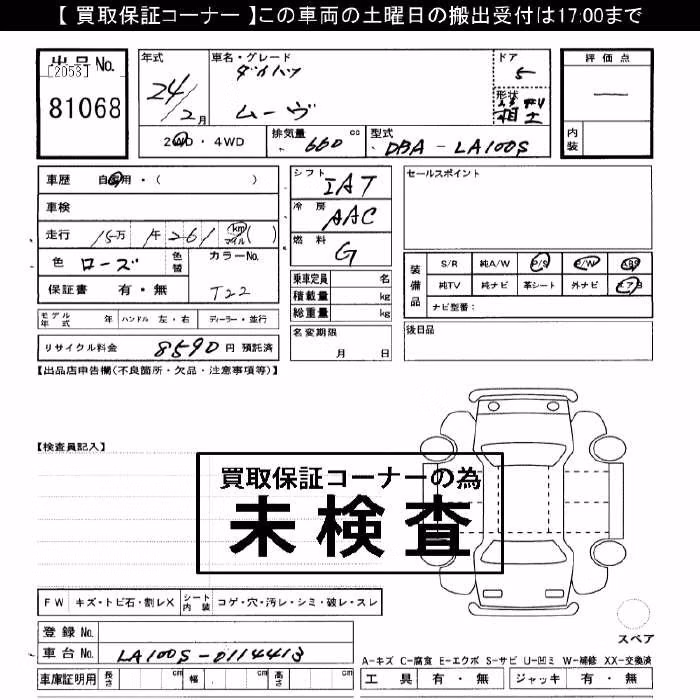 【 買取保証コーナー 】この車両の土曜日の搬出受付は17:00まで
出品No.
[2053]
81068
年式
24/2月
車名・グレード
ダイハツ
ムーヴ
ドア
5
形状
箱
評価点
—
内装
2WD・4WD
排気量 660 cc
型式 DBA-LA100S
車歴 自家用・( )
車検
走行 15万 千 261 km マイル ( )
色 ローズ
色替
カラーNo. T22
保証書 有・無
シフト IAT
冷房 AAC
燃料 G
乗車定員 名
積載量 kg
総重量 kg
名変期限
月 日
セールスポイント
装備品
S/R 純A/W P/S P/W ABS
純TV 純ナビ 革シート 外ナビ エアB
ナビ型番:
後日品
モデル年式 年 ハンドル 左・右 ディーラー・並行
リサイクル料金 8590 円 預託済
【出品店申告欄(不良箇所・欠品・注意事項等)】
【検査員記入】
買取保証コーナーの為
未検査
FW キズ・トビ石・割レX
シート内装 コゲ・穴・汚レ・シミ・破レ・スレ
登録No.
車台No. LA100S-0114413
車庫証明用 長さ cm 幅 cm 高さ cm
スペア
A-キズ C-腐食 E-エクボ S-サビ U-凹ミ W-補修 XX-交換済
工具 有・無 ジャッキ 有・無